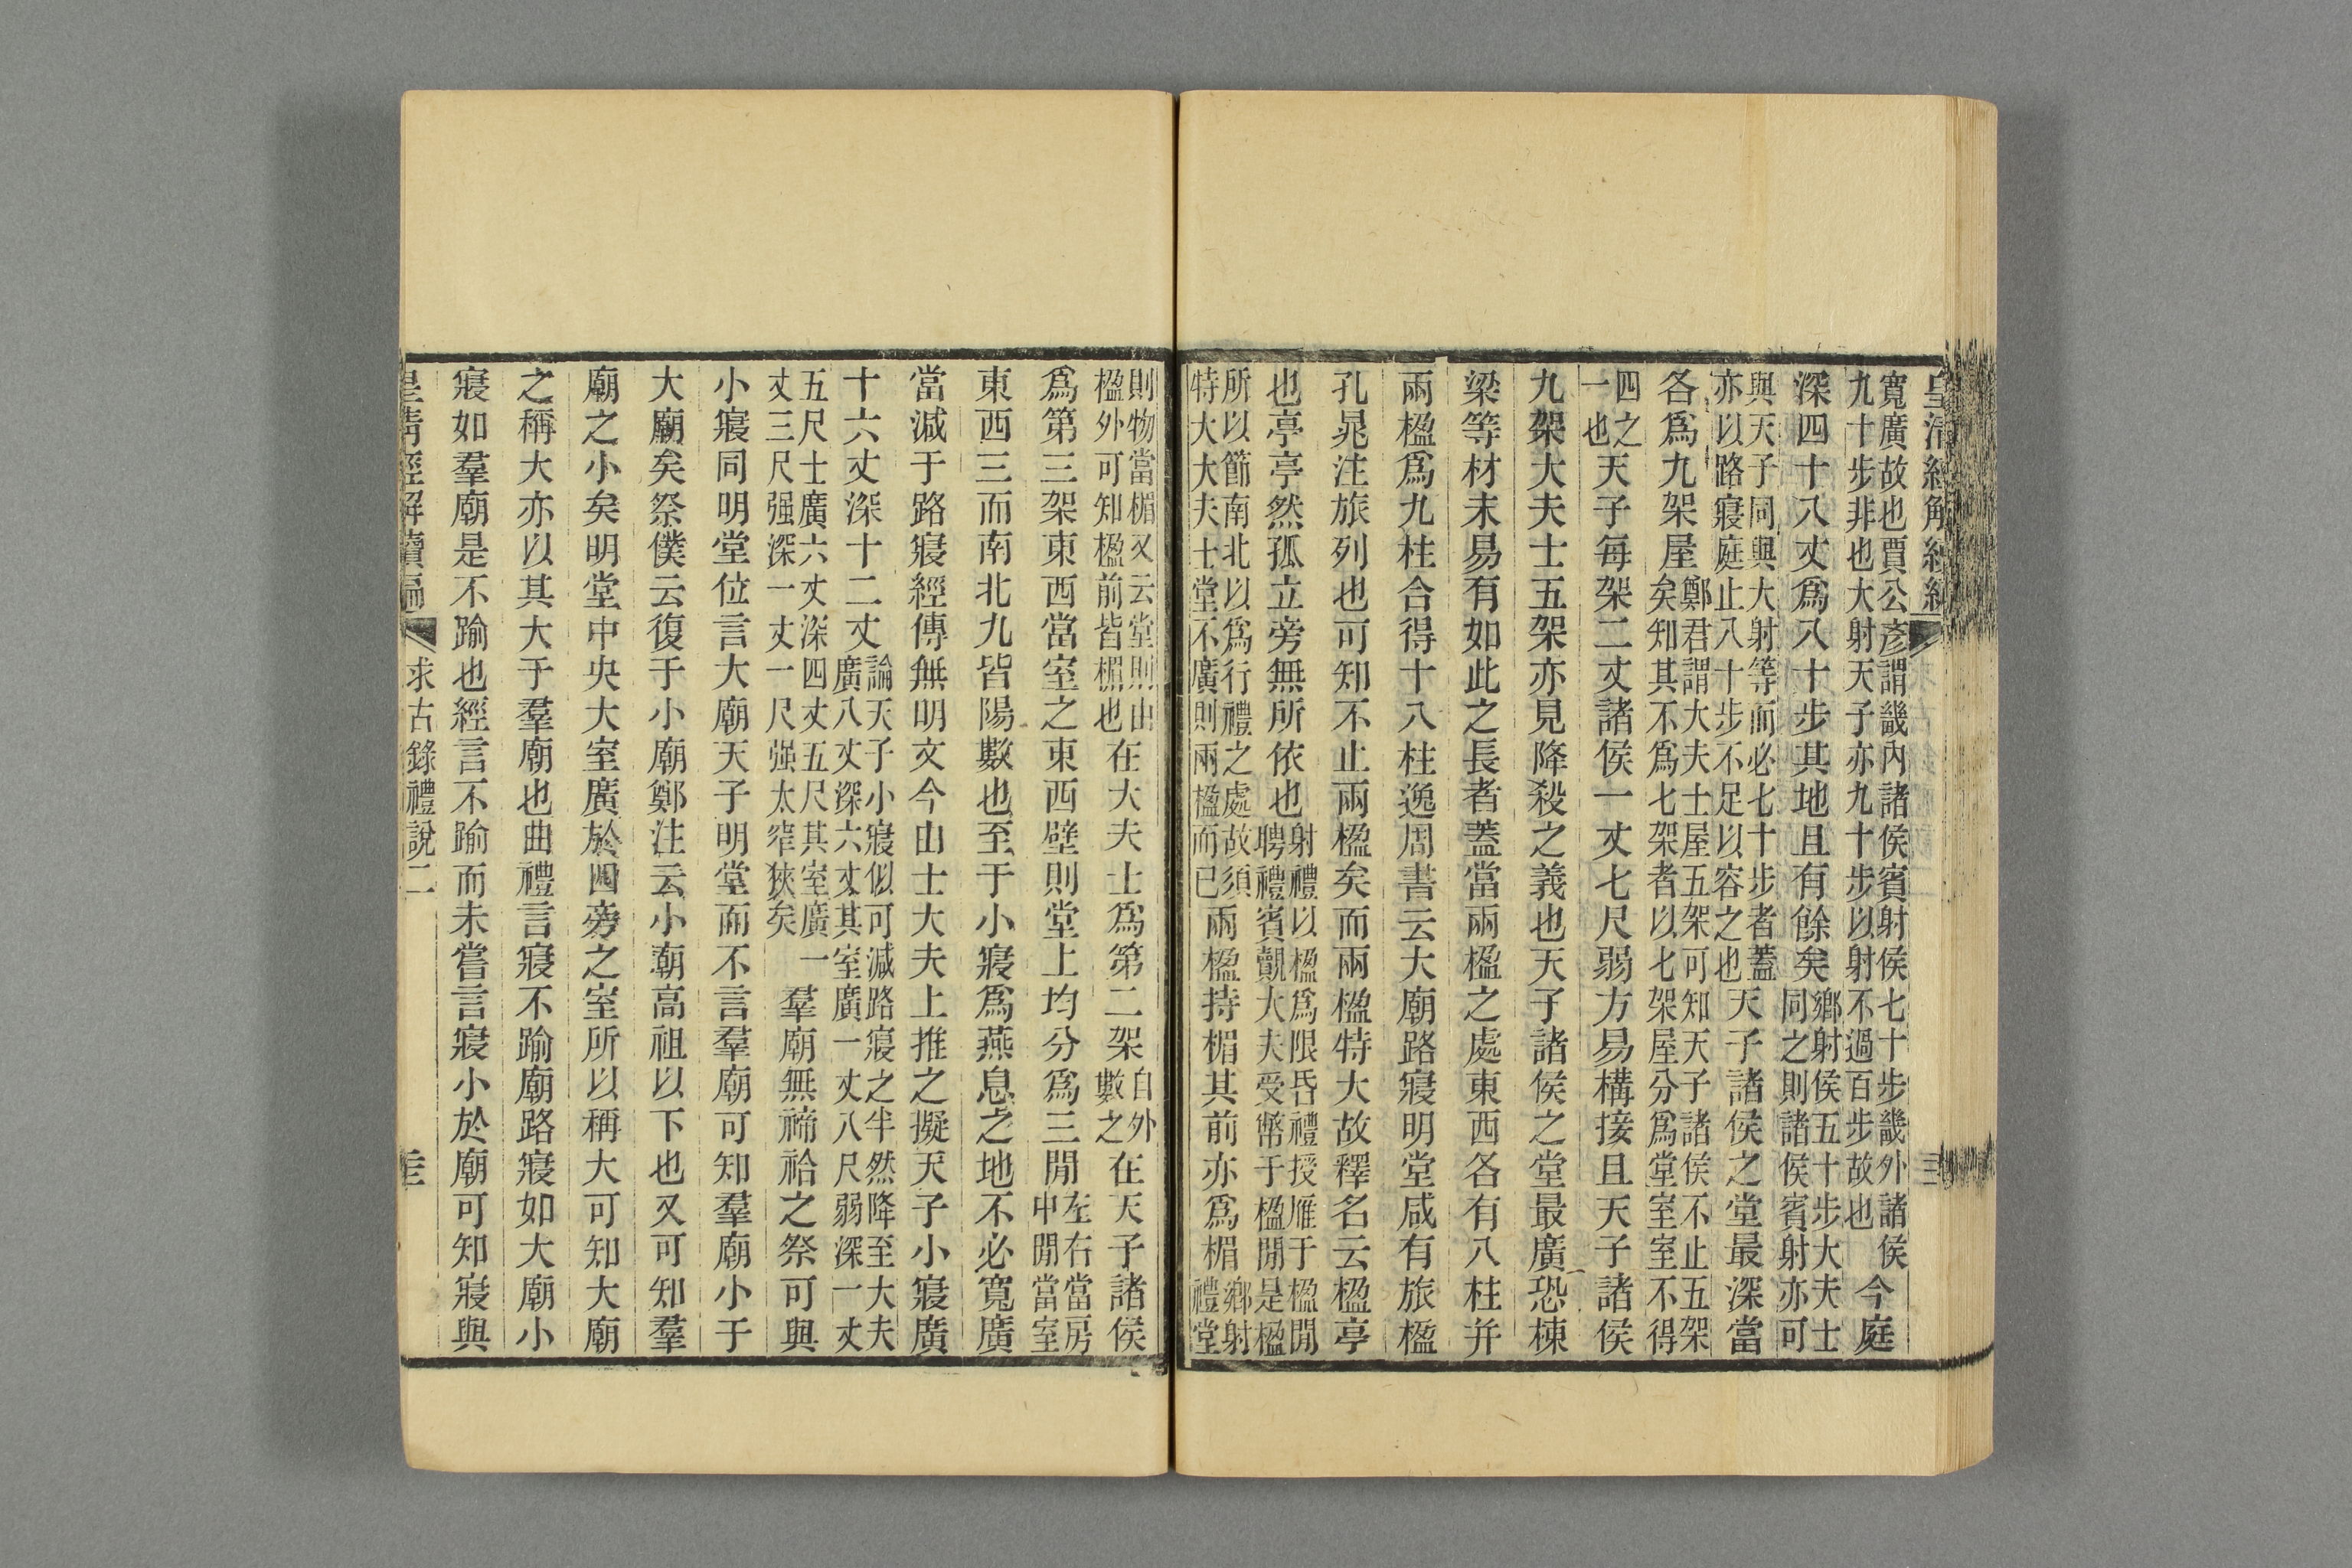 皇清經解續編
寬廣故也賈公彥謂畿內諸侯賓射侯七十步畿外諸侯九十步非也大射天子亦九十步以射不過百步故也今庭
深四十八丈爲八十步其地且有餘矣鄉射侯五十步大夫士同之則諸侯賓射亦可
與天子同與大射等而必七十步者蓋亦以路寢庭止八十步不足以容之也天子諸侯之堂最深當
各爲九架屋鄭君謂大夫士屋五架可知天子諸侯不止五架矣知其不爲七架者以七架屋分爲堂室室不得
四之一也天子每架二丈諸侯一丈七尺弱方易構接且天子諸侯
九架大夫士五架亦見降殺之義也天子諸侯之堂最廣恐棟
梁等材未易有如此之長者蓋當兩楹之處東西各有八柱并
兩楹爲九柱合得十八柱逸周書云大廟路寢明堂咸有旅楹
孔晁注旅列也可知不止兩楹矣而兩楹特大故釋名云楹亭
也亭亭然孤立旁無所依也射禮以楹爲限昏禮授雁于楹閒聘禮賓覿大夫受幣于楹閒是楹
所以節南北以爲行禮之處故須特大大夫士堂不廣則兩楹而已兩楹持楣其前亦爲楣鄉射禮堂
則物當楣又云堂則由楹外可知楹前皆楣也在大夫士爲第二架自外數之在天子諸侯
爲第三架東西當室之東西壁則堂上均分爲三閒左右當房中閒當室
東西三而南北九皆陽數也至于小寢爲燕息之地不必寬廣
當減于路寢經傳無明文今由士大夫上推之擬天子小寢廣
十六丈深十二丈論天子小寢似可減路寢之半然降至大夫廣八丈深六丈其室廣一丈八尺弱深一丈
五尺士廣六丈深四丈五尺其室廣一丈三尺强深一丈一尺强太窄狹矣羣廟無禘祫之祭可與
小寢同明堂位言大廟天子明堂而不言羣廟可知羣廟小于
大廟矣祭僕云復于小廟鄭注云小廟高祖以下也又可知羣
廟之小矣明堂中央大室廣於四旁之室所以稱大可知大廟
之稱大亦以其大于羣廟也曲禮言寢不踰廟路寢如大廟小
寢如羣廟是不踰也經言不踰而未嘗言寢小於廟可知寢與
皇清經解續編 求古錄禮說二